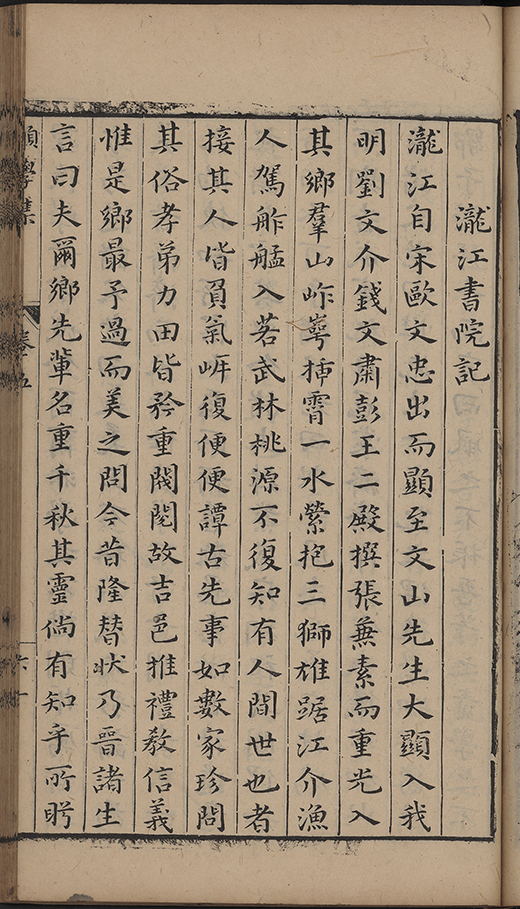 瀧江書院記
瀧江自宋歐文忠出而顯至文山先生大顯入我
明劉文介錢文肅彭王二殿撰張蒹素而重光入
其鄉羣山岞崿揷霄一水縈抱三獅雄踞江介漁
人駕舴艋入若武林桃源不復知有人間世也者
接其人皆負氣岸復便便譚古先事如數家珍問
其俗孝弟力田皆矜重閥閱故吉邑推禮教信義
惟是鄉最予過而美之問今昔隆替狀乃晉諸生
言曰夫爾鄉先輩名重千秋其靈倘有知乎所盻
學集
卷五
六十